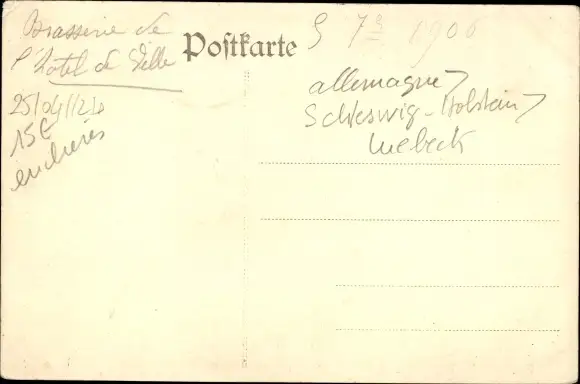 Brasserie de
l'hotel de Ville
25/04/24
15€
enchères
Postkarte
7 1906
allemagne
Schleswig-Holstein
Luebeck